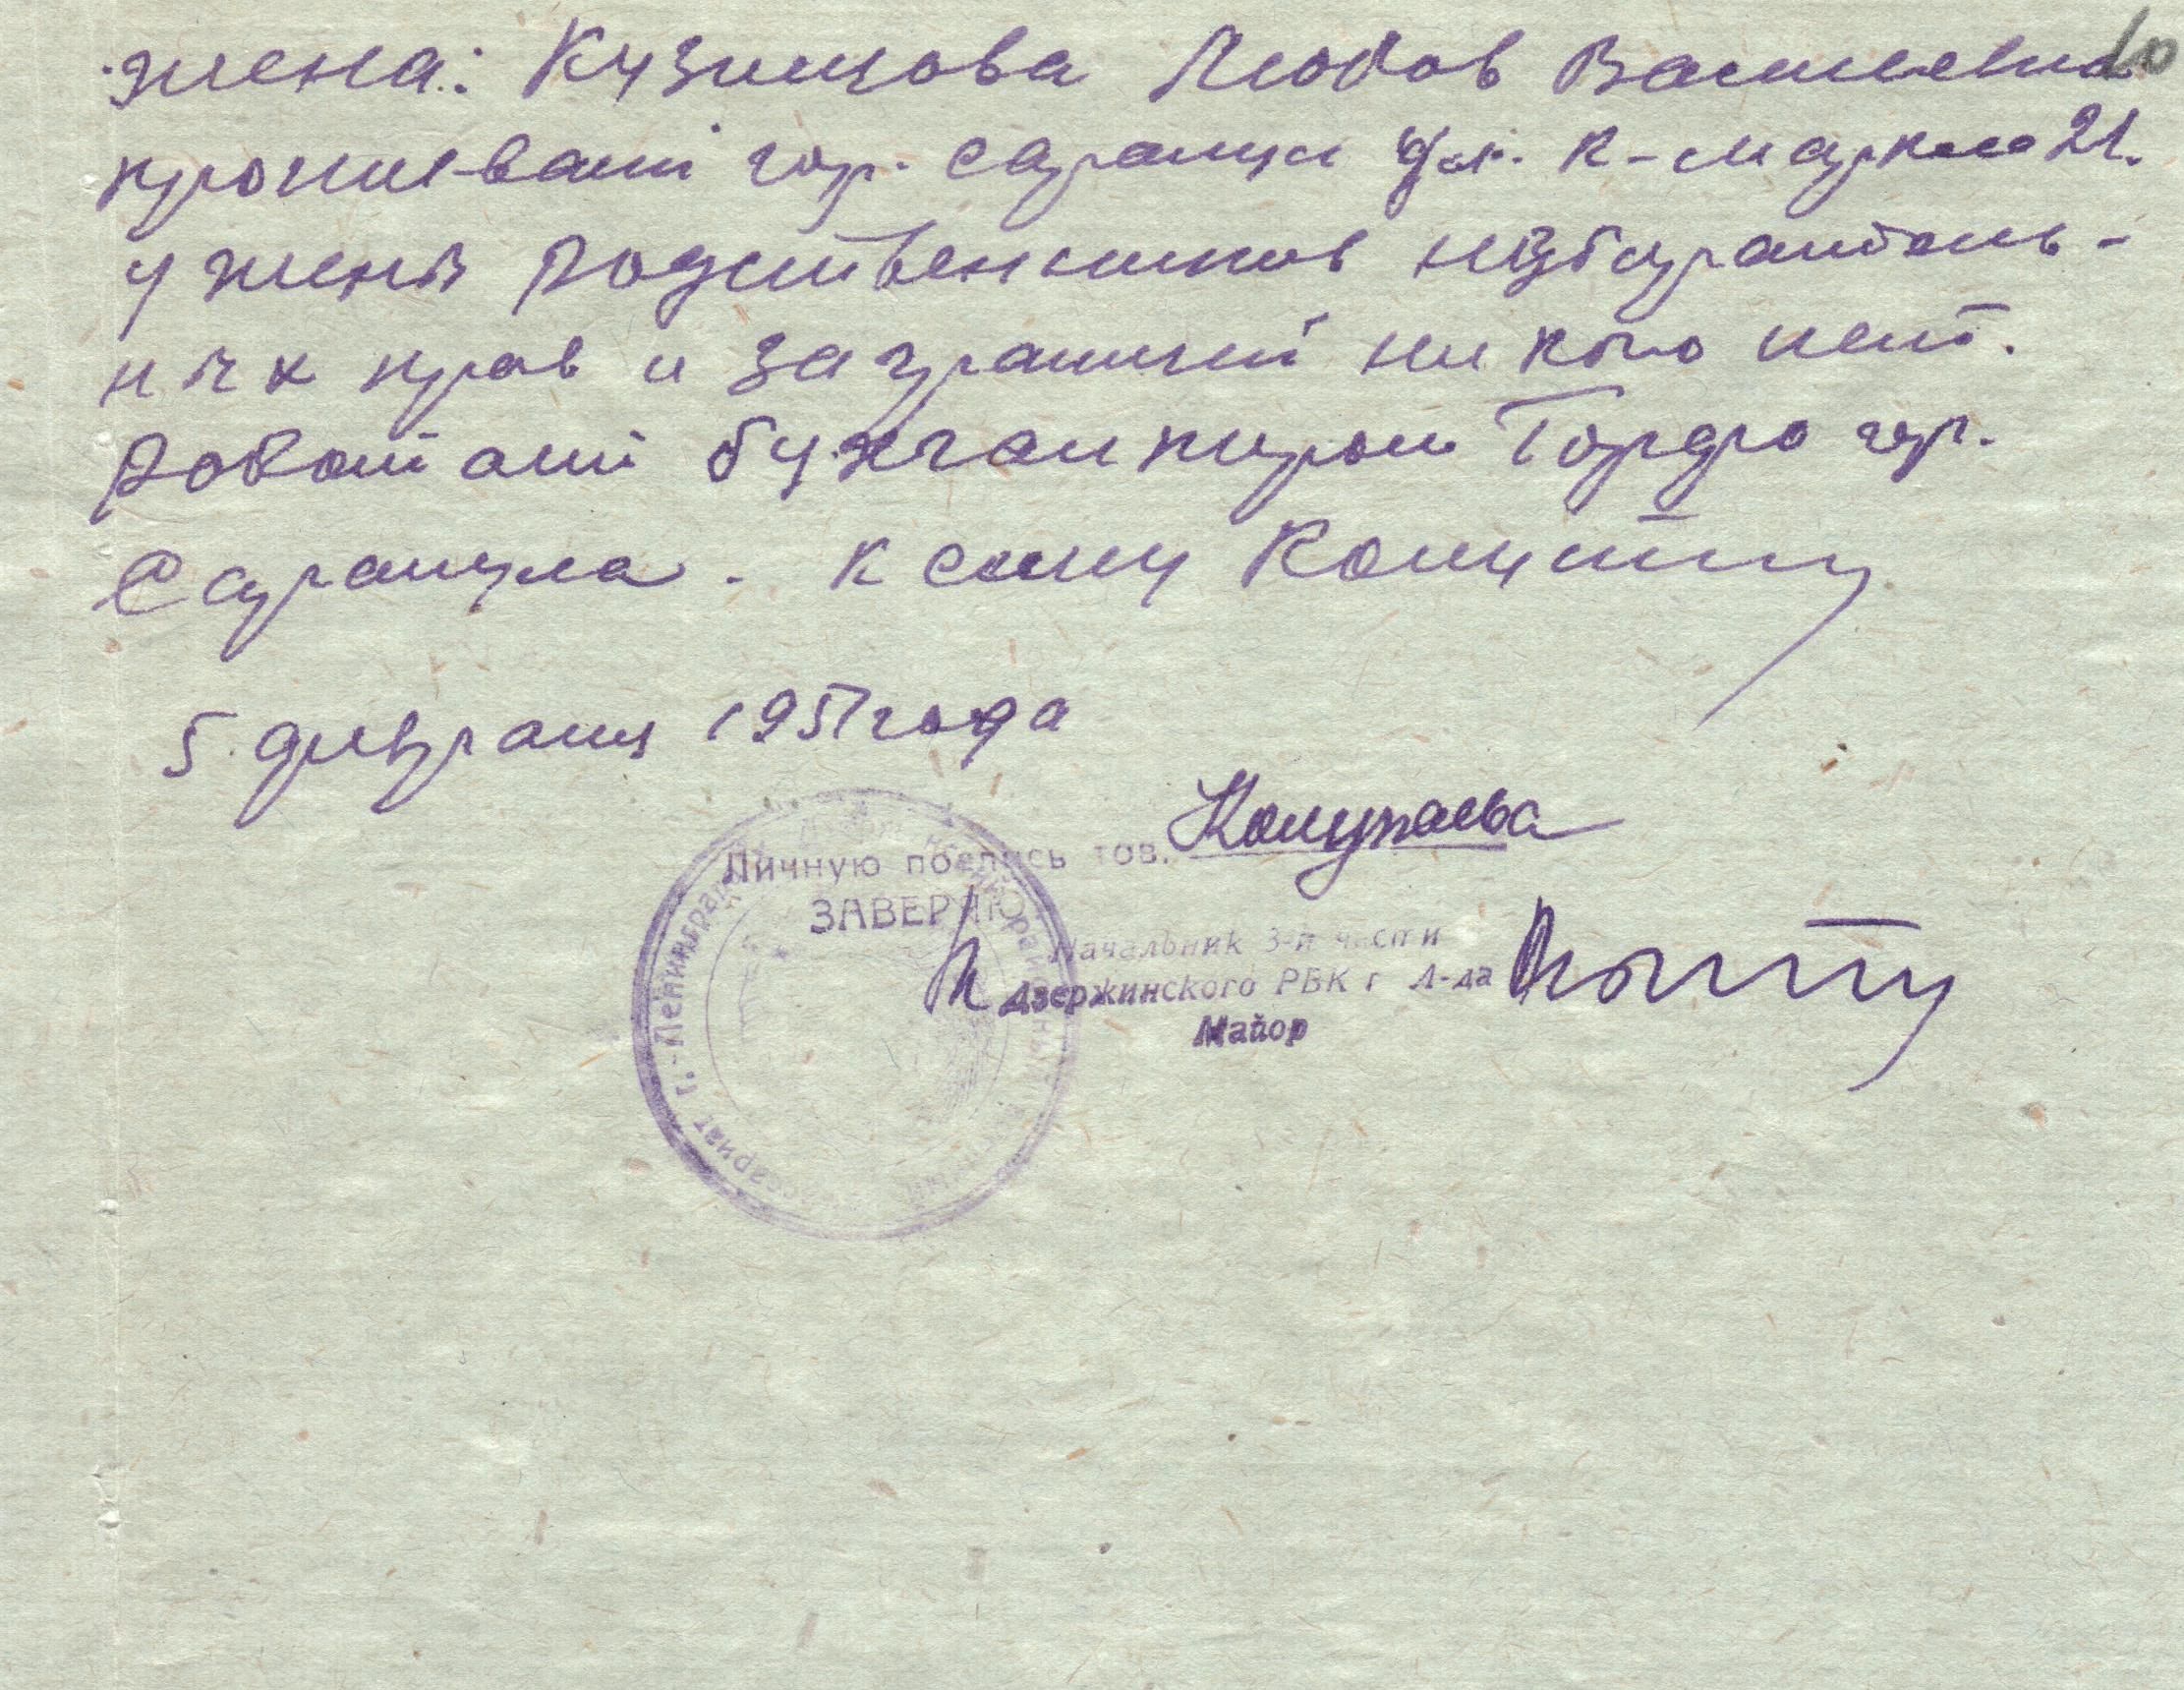 10
жена: Кузнецова Любов Васильевна
проживает гор. Сарапул ул. К-маркса 21.
у жены Родственников избиратель-
ных прав и заграницей ни кого нет.
Работает бухгалтером гор.
Сарапула. к сему
5 февраля 1951 года
Личную подпись тов. Колупаева
ЗАВЕРЯЮ
Начальник 3-й части
Дзержинского РВК г Л-да
Майор
г. Ленинграда